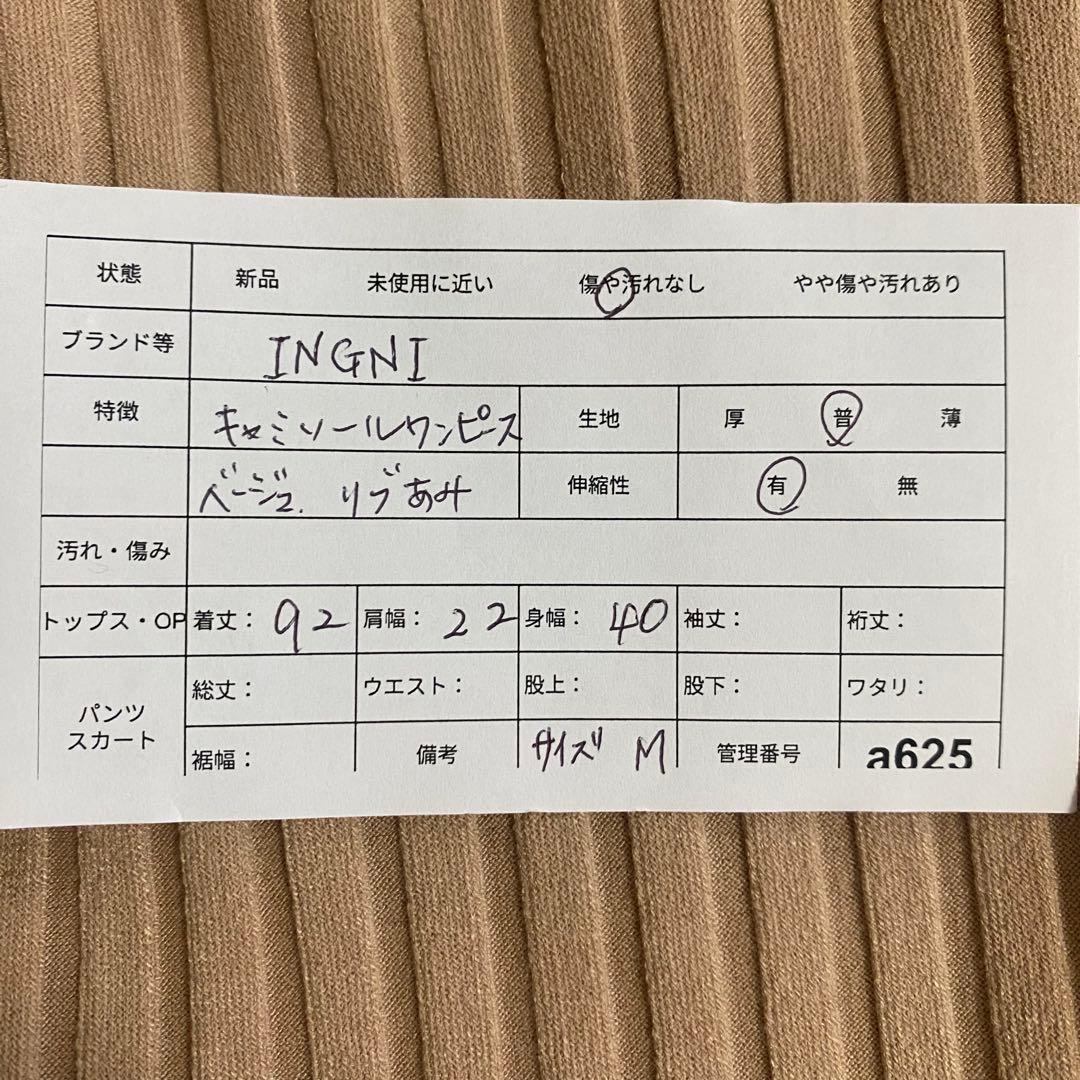 状態 新品 未使用に近い 傷や汚れなし やや傷や汚れあり
ブランド等 INGNI
特徴 キャミソールワンピース 生地 厚 普 薄
ベージュ. リブあみ 伸縮性 有 無
汚れ・傷み
トップス・OP 着丈: 92 肩幅: 22 身幅: 40 袖丈: 裄丈:
パンツ スカート 総丈: ウエスト: 股上: 股下: ワタリ:
裾幅: 備考 サイズ M 管理番号 a625